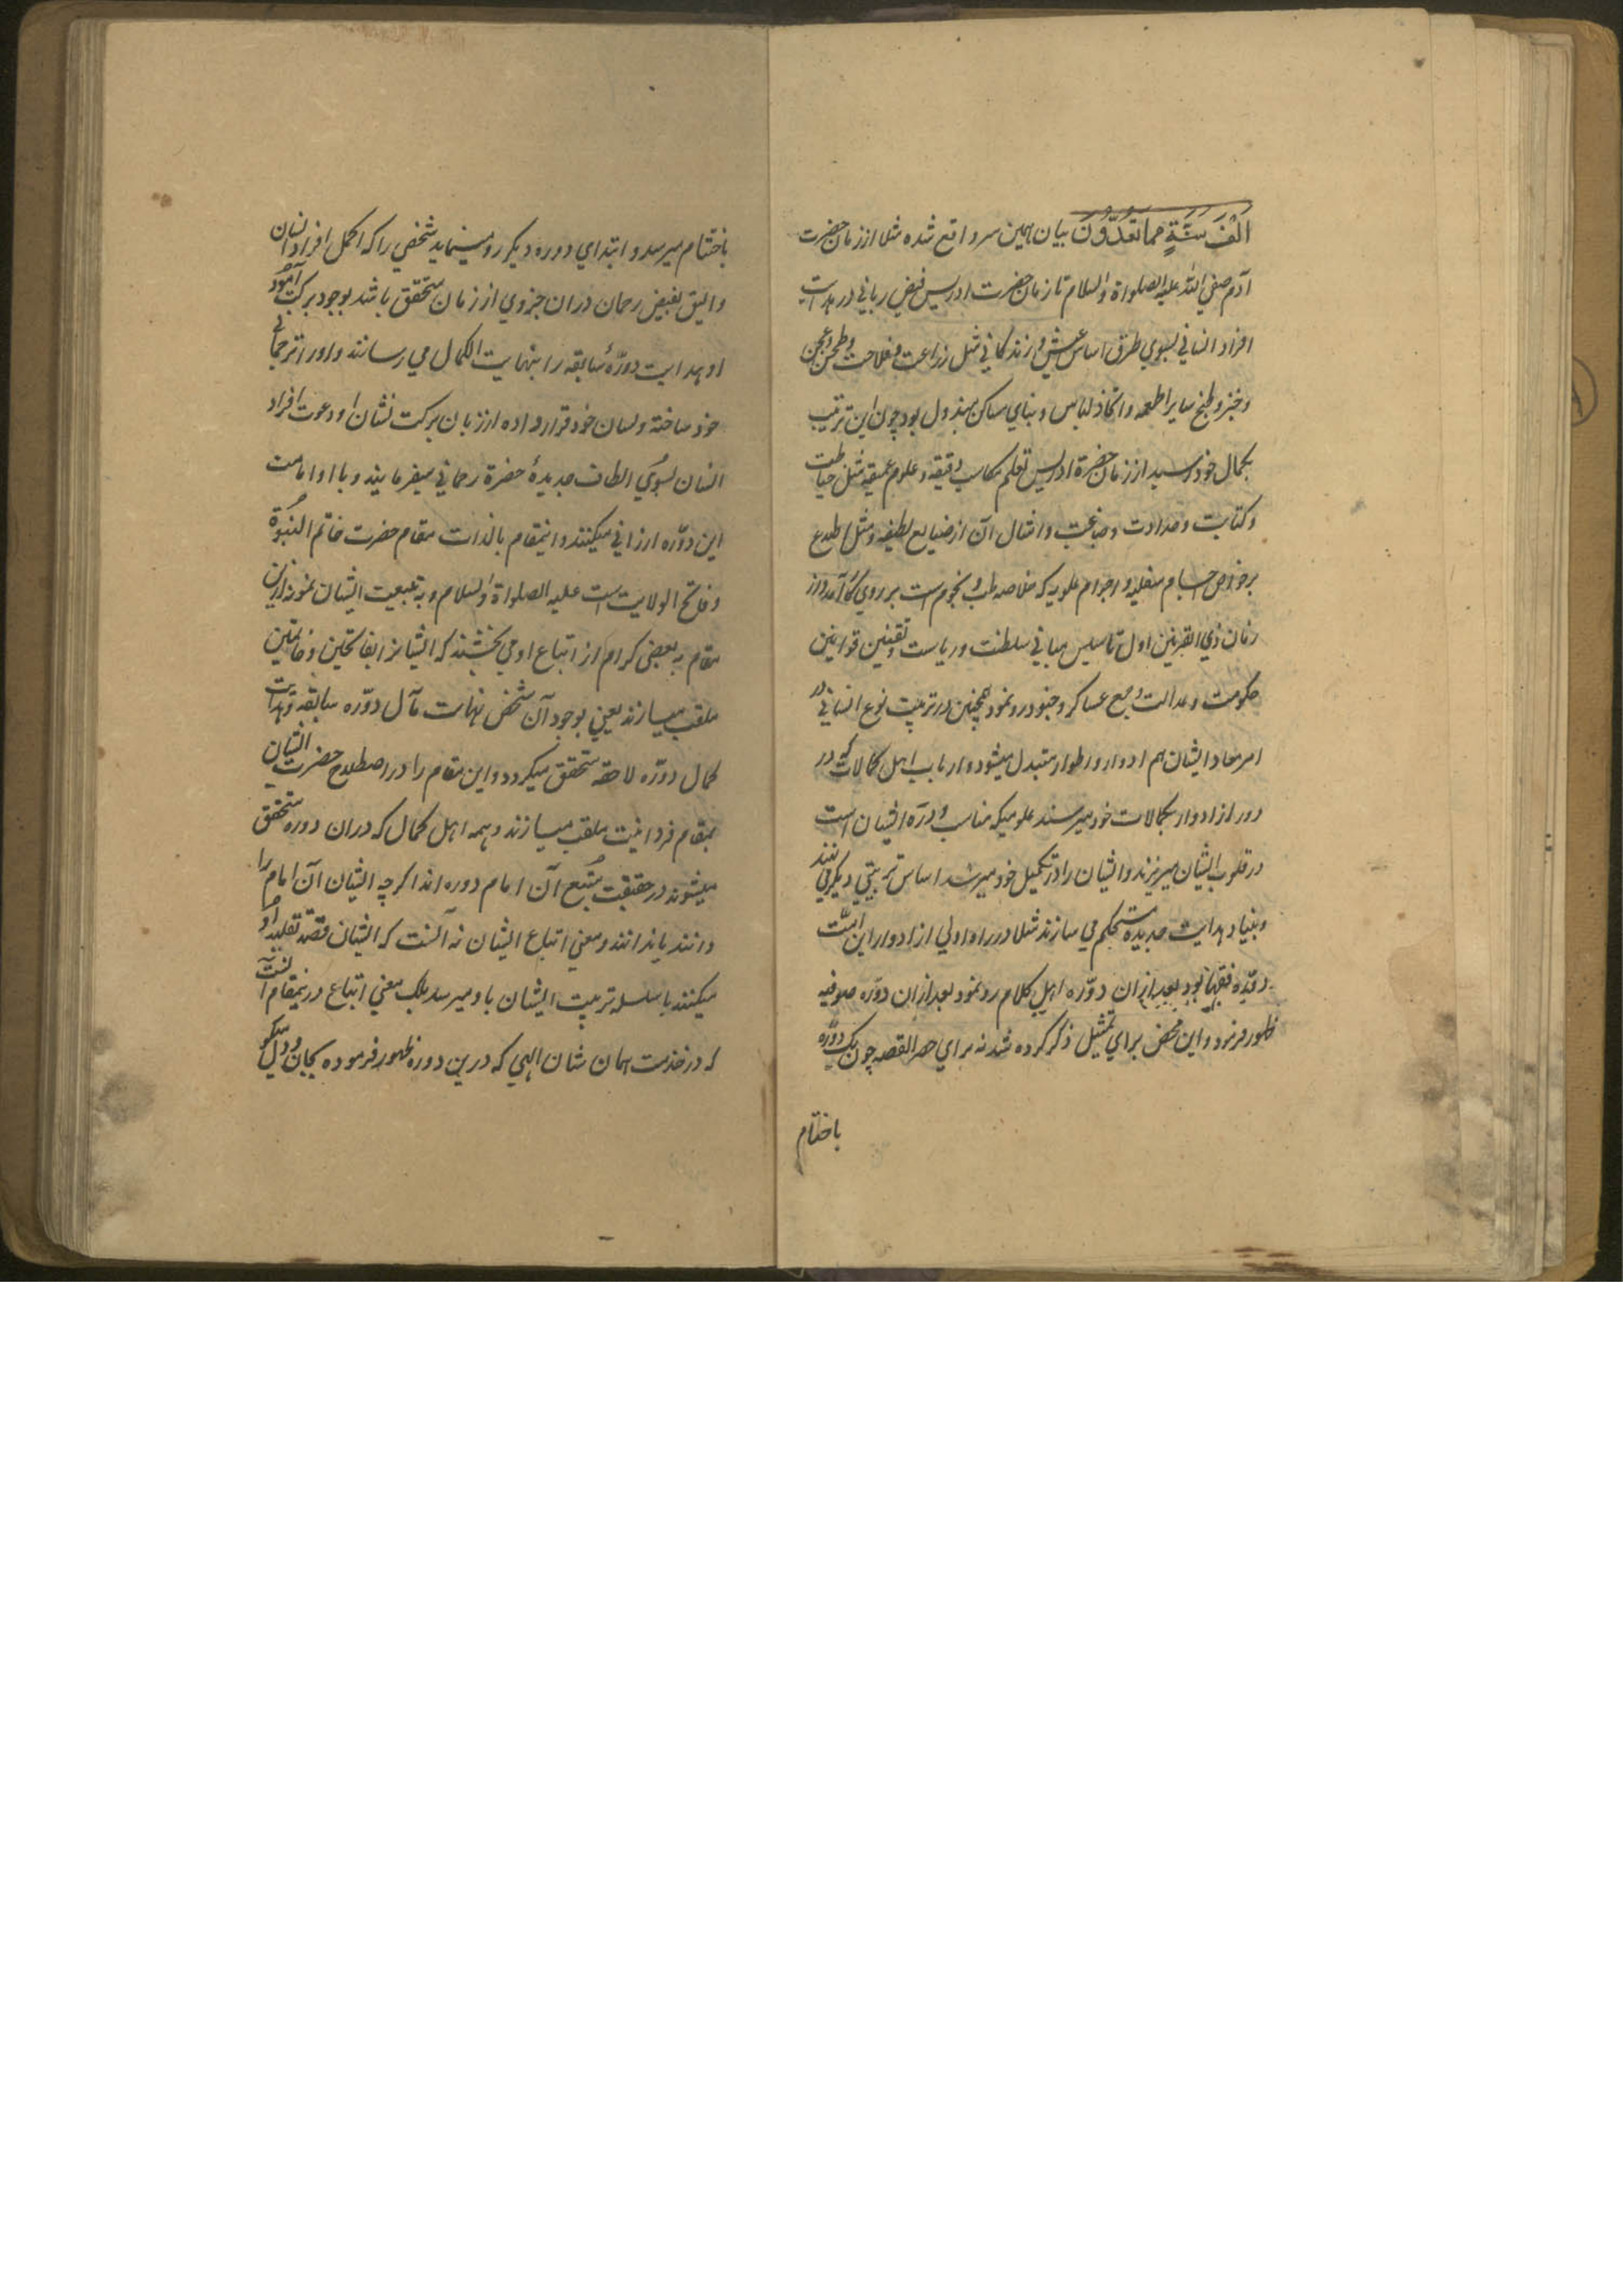 اَلْفَ سَنَةٍ مِمَّا تَعُدُّونَ بیان همین سر واقع شده مثلا از زمان حضرت
آدم صفی الله علیه الصلواة والسلام تا زمان حضرت ادریس فیض ربانی در هدایت
افراد انسانی بسوی طرق اساس عیش و زندکانی مثل زراعت و فلاحت و طحن و عجن
و خبز و طبخ سایر اطعمه و اتخاذ لباس و بنای مساکن مبذول بود چون این ترتیب
بکمال خود رسید از زمان حضرة ادریس تعلم مکاسب دقیقه و علوم عمیقه مثل خیاطت
و کتابت و حدادت و صباغت و امثال آن از صنایع لطیفه و مثل اطلاع
بر خواص اجسام سفلیه و اجرام علویه که خلاصه طب و نجوم است بر روی کار آمد و از
زمان ذی القرنین اول تاسیس مبانی سلطنت و ریاست و تقنین قوانین
حکومت و عدالت و جمع عساکر و جنود رو نمود همچنین در تربیت نوع انسانی در
امر معاد ایشان هم ادوار و اطوار متبدل میشود و ارباب اهل کمالات که در
دور از ادوار بکمالات خود میرسند علومیکه مناسب دوره ایشان است
در قلوب ایشان میریزند و ایشان را در تکمیل خود میرشد اساس تربیتی دیکر می نهند
و بنیاد هدایت جدیده مستحکم می سازند مثلا در راه اولی از ادوار این امت
دوره فقها بود بعد ازان دوره اهل کلام رو نمود بعد ازان دوره صوفیه
ظهور فرمود و این محض برای تمثیل ذکر کرده شد نه برای حصر القصه چون یک دوره
باختتام
باختتام میرسد و ابتدای دوره دیکر رو مینماید شخصی را که اکمل افراد انسان
والیق بفیض رحمان دران جزوی از زمان متحقق باشد بوجود برکت آمود
او هدایت دوره سابقه را بنهایت الکمال می رسانند و او را ترجمان
خود ساخته و لسان خود قرار داده از زبان برکت نشان او دعوت افراد
انسان بسوی الطاف جدیدهٔ حضرة رحمانی میفرمایند و با او امامت
این دوره ارزانی میکنند و اینمقام بالذات مقام حضرت خاتم النبوة
و فاتح الولایت است علیه الصلواة والسلام و به تبعیت ایشان نمونه ازین
مقام به بعضی کرام از اتباع او می بخشند که ایشانرا بفاتحین و خاتمین
ملقب میسازند یعنی بوجود آن شخص نهایت مآل دوره سابقه و بدایت
کمال دوره لاحقه متحقق میکردد و این مقام را در اصطلاح حضرت ایشان
بمقام فردانیت ملقب میسازند و همه اهل کمال که دران دوره متحقق
میشوند در حقیقت متبع آن امام دوره اند اکرچه ایشان آن امام را
دانند یا ندانند و معنی اتباع ایشان نه آنست که ایشان قصد تقلید او
میکنند یا سلسله تربیت ایشان باو میرسد بلکه معنی اتباع درینمقام آنست
که در خدمت همان شان الهی که درین دوره ظهور فرموده بجان و دل میکو